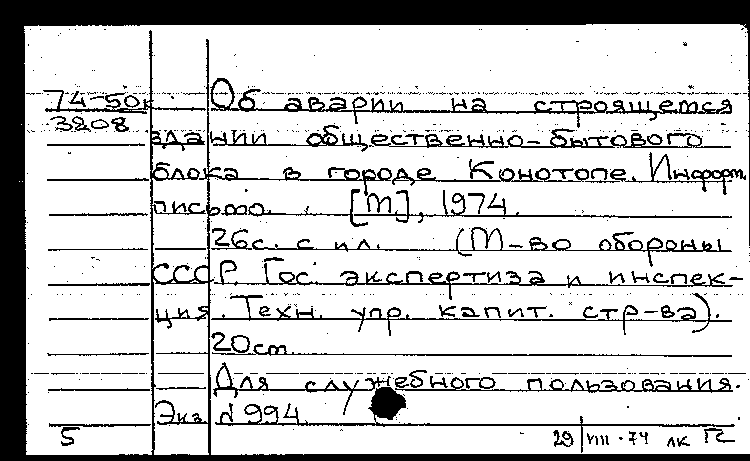 74-50к Об аварии на строящемся
3208
здании общественно-бытового
блока в городе Конотопе. Информ.
письмо. [М], 1974.
26с. с ил. (М-во обороны
СССР. Гос. экспертиза и инспек-
ция. Техн. упр. капит. стр-ва).
20см.
Для служебного пользования.
Экз. № 994
5 29 VIII-74 лк ГС